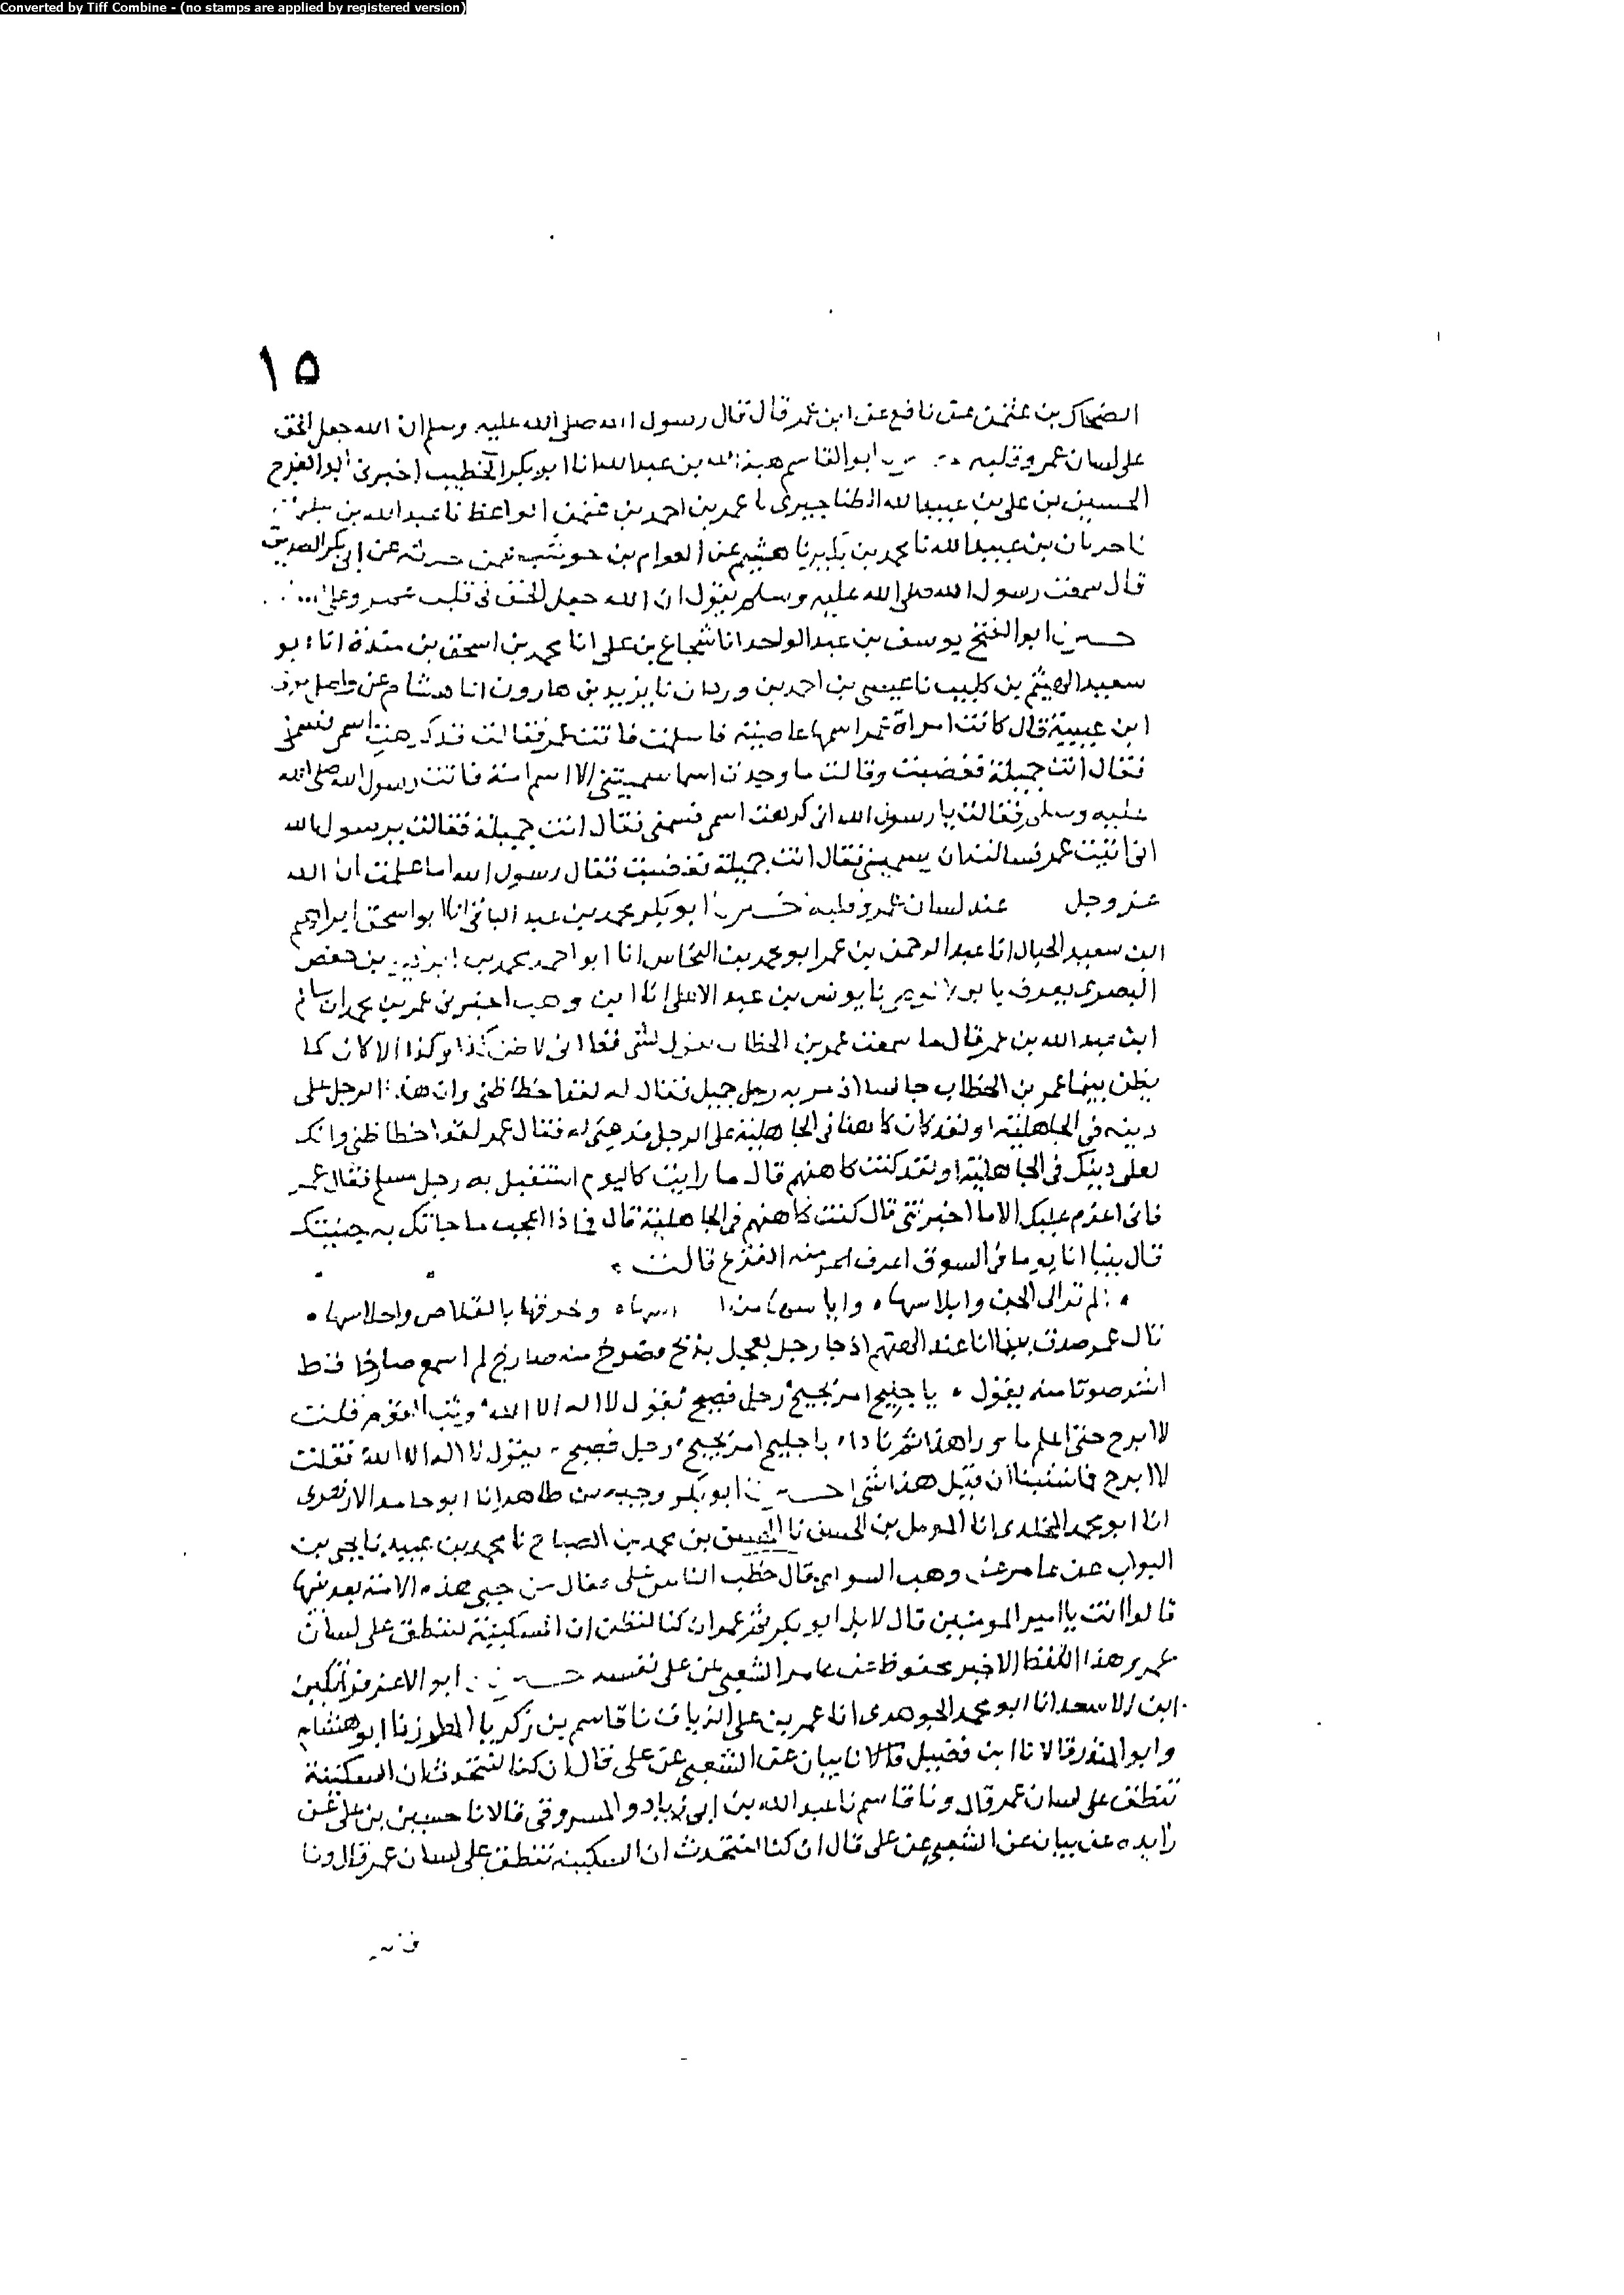 Converted by Tiff Combine - (no stamps are applied by registered version)
١٥
الضحاك بن عثمن عن نافع عن ابن عمر قال قال رسول الله صلى الله عليه وسلم ان الله جعل الحق
على لسان عمر وقلبه ابو القاسم هبة الله بن عبد الله انا ابو بكر الخطيب اخبرني ابو الفرج
الحسين بن علي بن عبيد الله الطناجيري نا عمر بن احمد بن عثمن الواعظ نا عبد الله بن
نا بن عبيد الله نا محمد بن نا هشيم عن العوام بن حوشب عمن حدثه عن ابي بكر الصديق
قال سمعت رسول الله صلى الله عليه وسلم يقول ان الله جعل الحق في قلب عمر وعلى
ابو الفتح يوسف بن عبد الواحد انا شجاع بن علي انا محمد بن اسحق بن مندة انا ابو
سعيد الهيثم بن كليب نا عيسى بن احمد بن وردان نا يزيد بن هارون انا هشام عن واصل مولى
ابن عيينة قال كانت امراة عمر اسمها عاصية فاسلمت فاتت عمر فقالت قد كرهت اسمي فسمني
فقال انت جميلة فغضبت وقالت ما وجدت اسما سميتني الا اسم امة فاتت رسول الله صلى الله
عليه وسلم فقالت يا رسول الله اني كرهت اسمي فسمني فقال انت جميلة فقالت يرسول الله
اني اتيت عمر فسالته ان يسميني فقال انت جميلة فغضبت فقال رسول الله اما علمت ان الله
عز وجل عند لسان عمر وقلبه ابو بكر محمد بن عبد الباقي انا ابو اسحق ابراهيم
ابن سعيد الحبال انا عبد الرحمن بن عمر ابو محمد بن النحاس انا ابو احمد محمد بن بن حفص
البصري يعرف نا يونس بن عبد الاعلى انا ابن وهب اخبرني عمر بن محمد ان سالم
ابن عبد الله بن عمر قال ما سمعت عمر بن الخطاب يقول لشي قط اني لاظن كذا وكذا الا كان كما
يظن بينما عمر بن الخطاب جالسا اذ مر به رجل جميل فقال له لقد اخطا ظني وان هذا الرجل على
دينه في الجاهلية او لقد كان كاهنا في الجاهلية على الرجل فدعي له فقال عمر لقد اخطا ظني وانك
لعلى دينك في الجاهلية او لقد كنت كاهنهم قال ما رايت كاليوم استقبل به رجل مسلم فقال عمر
فاني اعزم عليك الا ما اخبرتني قال كنت كاهنهم في الجاهلية قال فماذا اعجب ما جاتك به جنيتك
قال بينا انا يوما في السوق اعرف منه الفزع قالت
الم تر الى الجن وابلاسها واياسها من وخوفها بالقلاص واحلاسها
قال عمر صدق بينا انا عند الهتهم اذ جا رجل بعجل يذبح فصرخ منه صارخ لم اسمع صارخا قط
اشد صوتا منه يقول يا جليح امر نجيح رجل فصيح يقول لا اله الا الله وثب القوم فقلت
لا ابرح حتى اعلم ما ورا هذا ثم نادا يا جليح امر نجيح رجل فصيح يقول لا اله الا الله فقلت
لا ابرح فما شبنا ان قيل هذا نبي ابو بكر وجيه بن طاهر انا ابو حامد الازهري
انا ابو محمد المخلدي انا المومل بن الحسن نا الحسن بن محمد بن الصباح نا محمد بن عبيد نا يحيى بن
البواب عن عامر عن وهب السواي قال خطب الناس علي فقال من خير هذه الامة بعد نبيها
قالوا انت يا امير المومنين قال لا بل ابو بكر ثم عمر ان كنا لنظن ان السكينة لتنطق على لسان
عمر وهذا اللفظ الاخير محفوظ عن عامر الشعبي عن علي نفسه ابو الاعز قراتكين
ابن الاسعد انا ابو محمد الجوهري انا عمر بن علي الزيات نا قاسم بن زكريا المطرز نا ابو هشام
وابو المنذر قالا نا ابن فضيل قالا نا بيان عن الشعبي عن علي قال ان كنا لنتحدث ان السكينة
تنطق على لسان عمر قال ونا قاسم نا عبد الله بن ابي زياد والمسروقي قالا نا حسين بن علي عن
زايده عن بيان عن الشعبي عن علي قال ان كنا لنتحدث ان السكينه تنطق على لسان عمر قال ونا